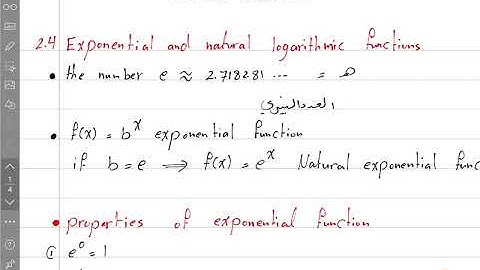 2.4 Exponential and natural logarithmic functions
• the number e ≈ 2.718281 ... = هـ
العدد النيبيري
• f(x) = b^x exponential function
if b = e ⟹ f(x) = e^x Natural exponential func
• properties of exponential function
① e^0 = 1